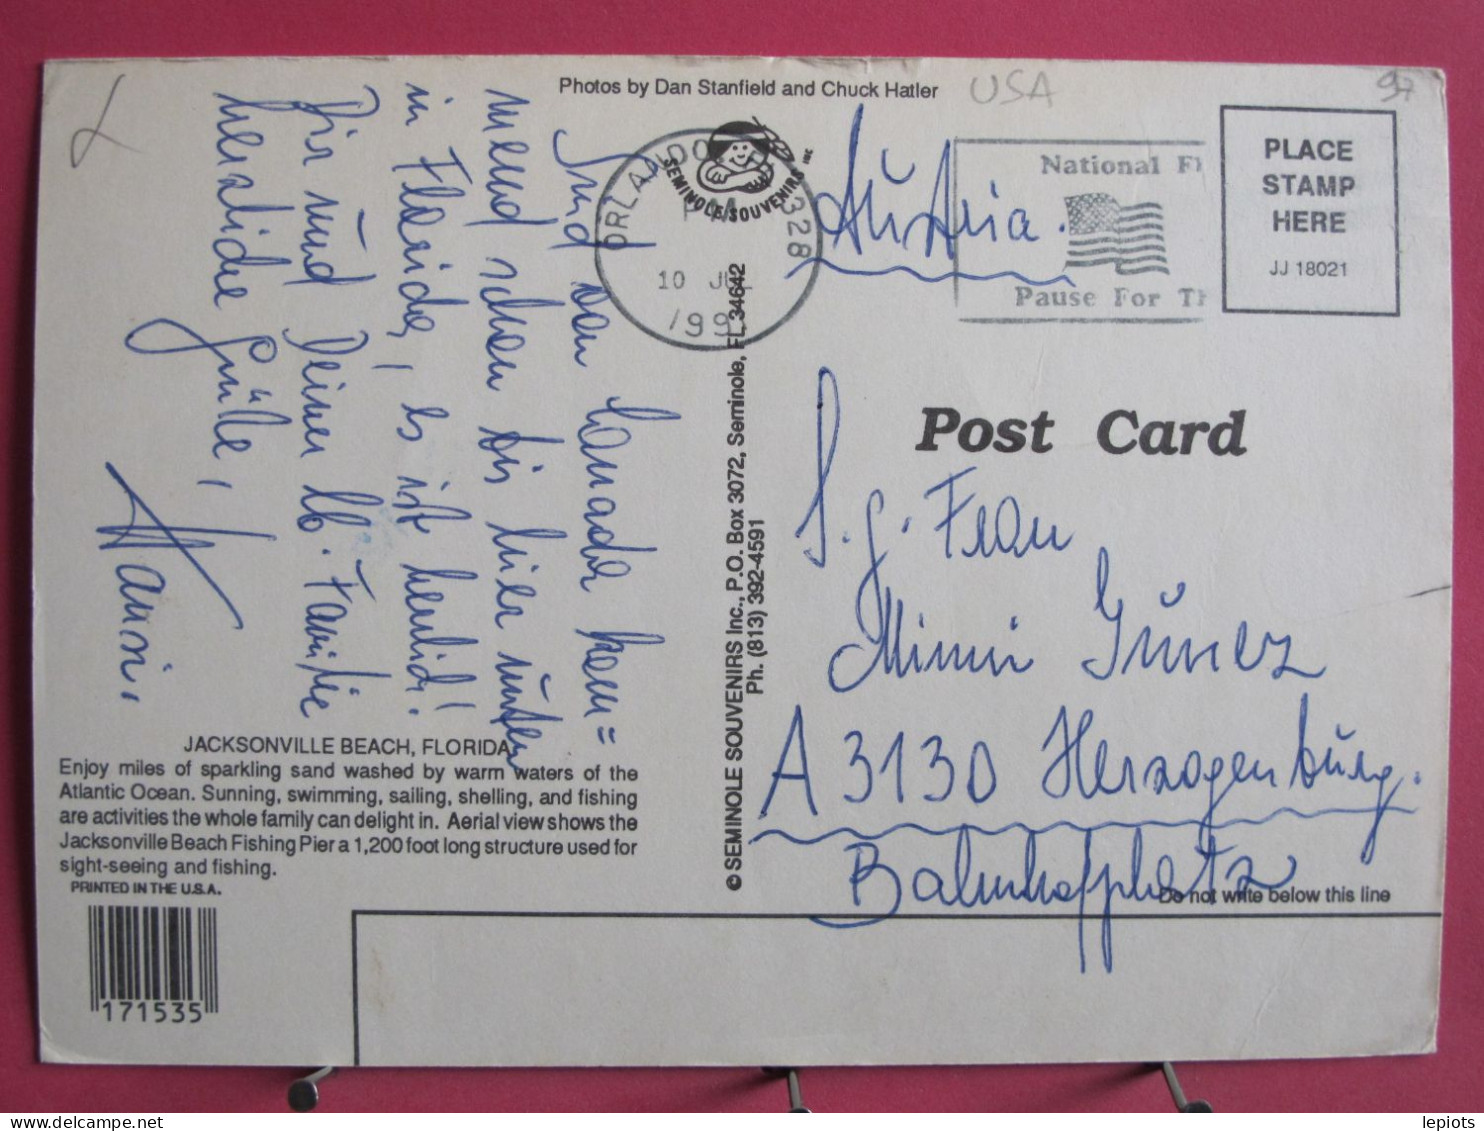 Photos by Dan Stanfield and Chuck Hatler
USA
97
PLACE
STAMP
HERE
JJ 18021
National Fl
Pause For Th
ORLANDO, 328
PM
10 JUL
199
SEMINOLE SOUVENIRS INC
Austria.
Post Card
S.g. Frau
Mimi
A 3130 Herzogenburg.
Bahnhofplatz
Do not write below this line
Sind von Canada kom=
mend schon bis hier unten
in Florida, es ist herrlich!
Dir und Deiner lb. Familie
herzliche Grüße,
Hanni.
© SEMINOLE SOUVENIRS Inc., P.O. Box 3072, Seminole, FL 34642
Ph. (813) 392-4591
JACKSONVILLE BEACH, FLORIDA
Enjoy miles of sparkling sand washed by warm waters of the
Atlantic Ocean. Sunning, swimming, sailing, shelling, and fishing
are activities the whole family can delight in. Aerial view shows the
Jacksonville Beach Fishing Pier a 1,200 foot long structure used for
sight-seeing and fishing.
PRINTED IN THE U.S.A.
171535
lepiots